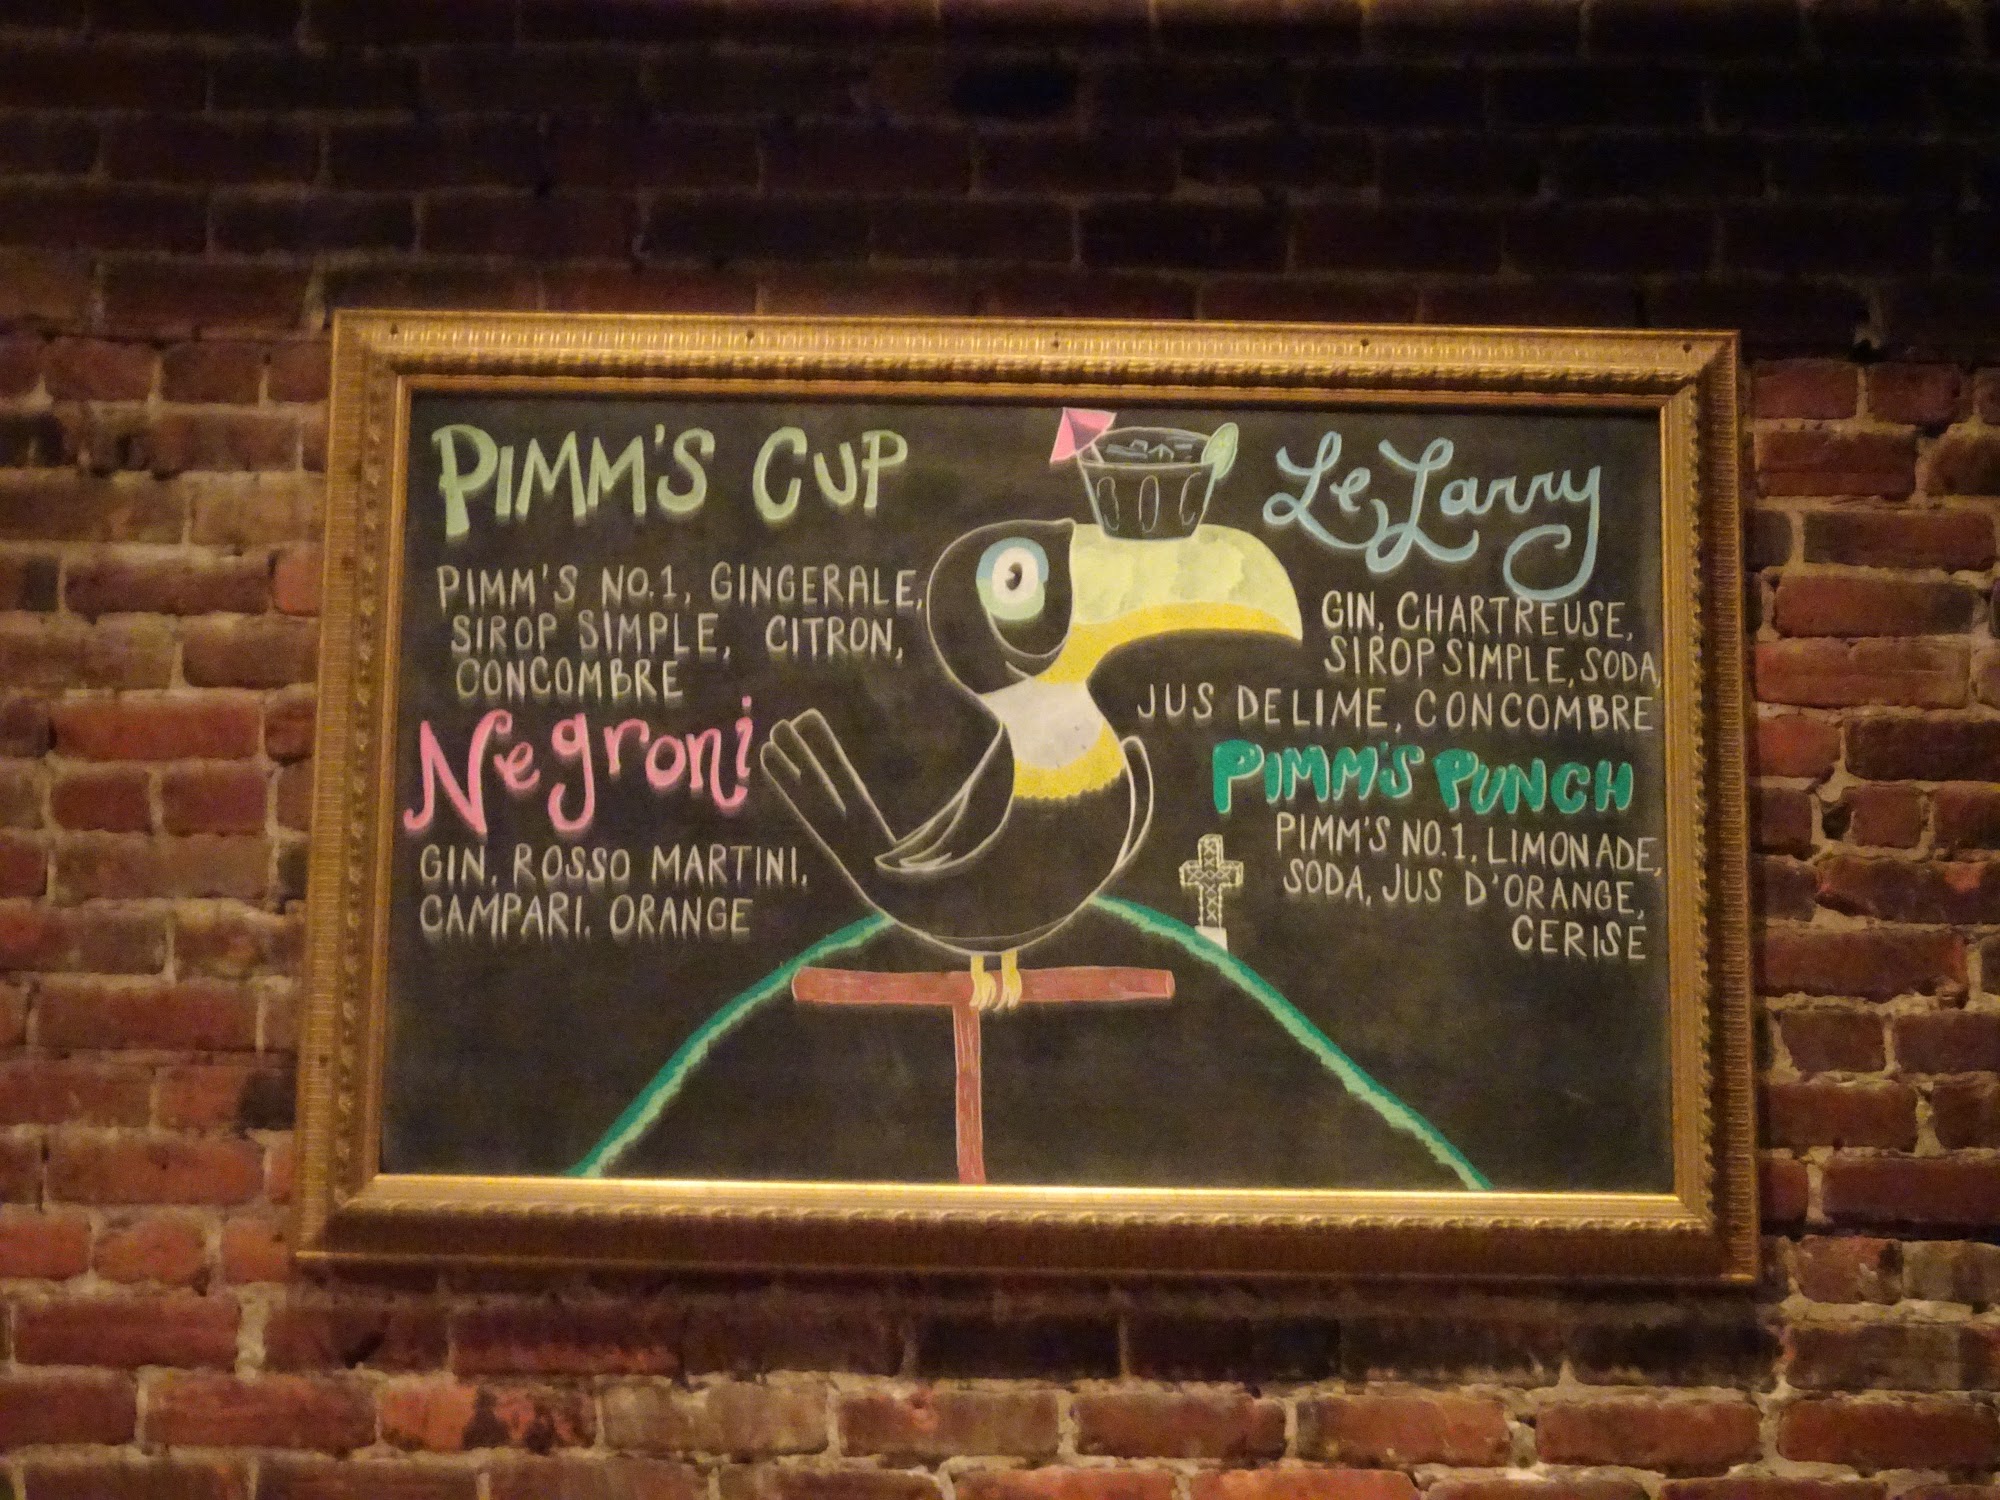 PIMM'S CUP
PIMM'S NO.1, GINGERALE,
SIROP SIMPLE, CITRON,
CONCOMBRE
Negroni
GIN, ROSSO MARTINI,
CAMPARI, ORANGE
Le Larry
GIN, CHARTREUSE,
SIROP SIMPLE, SODA,
JUS DE LIME, CONCOMBRE
PIMM'S PUNCH
PIMM'S NO.1, LIMONADE,
SODA, JUS D'ORANGE,
CERISE